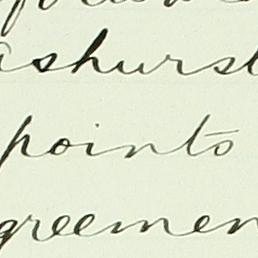 ashurst
points
greemen